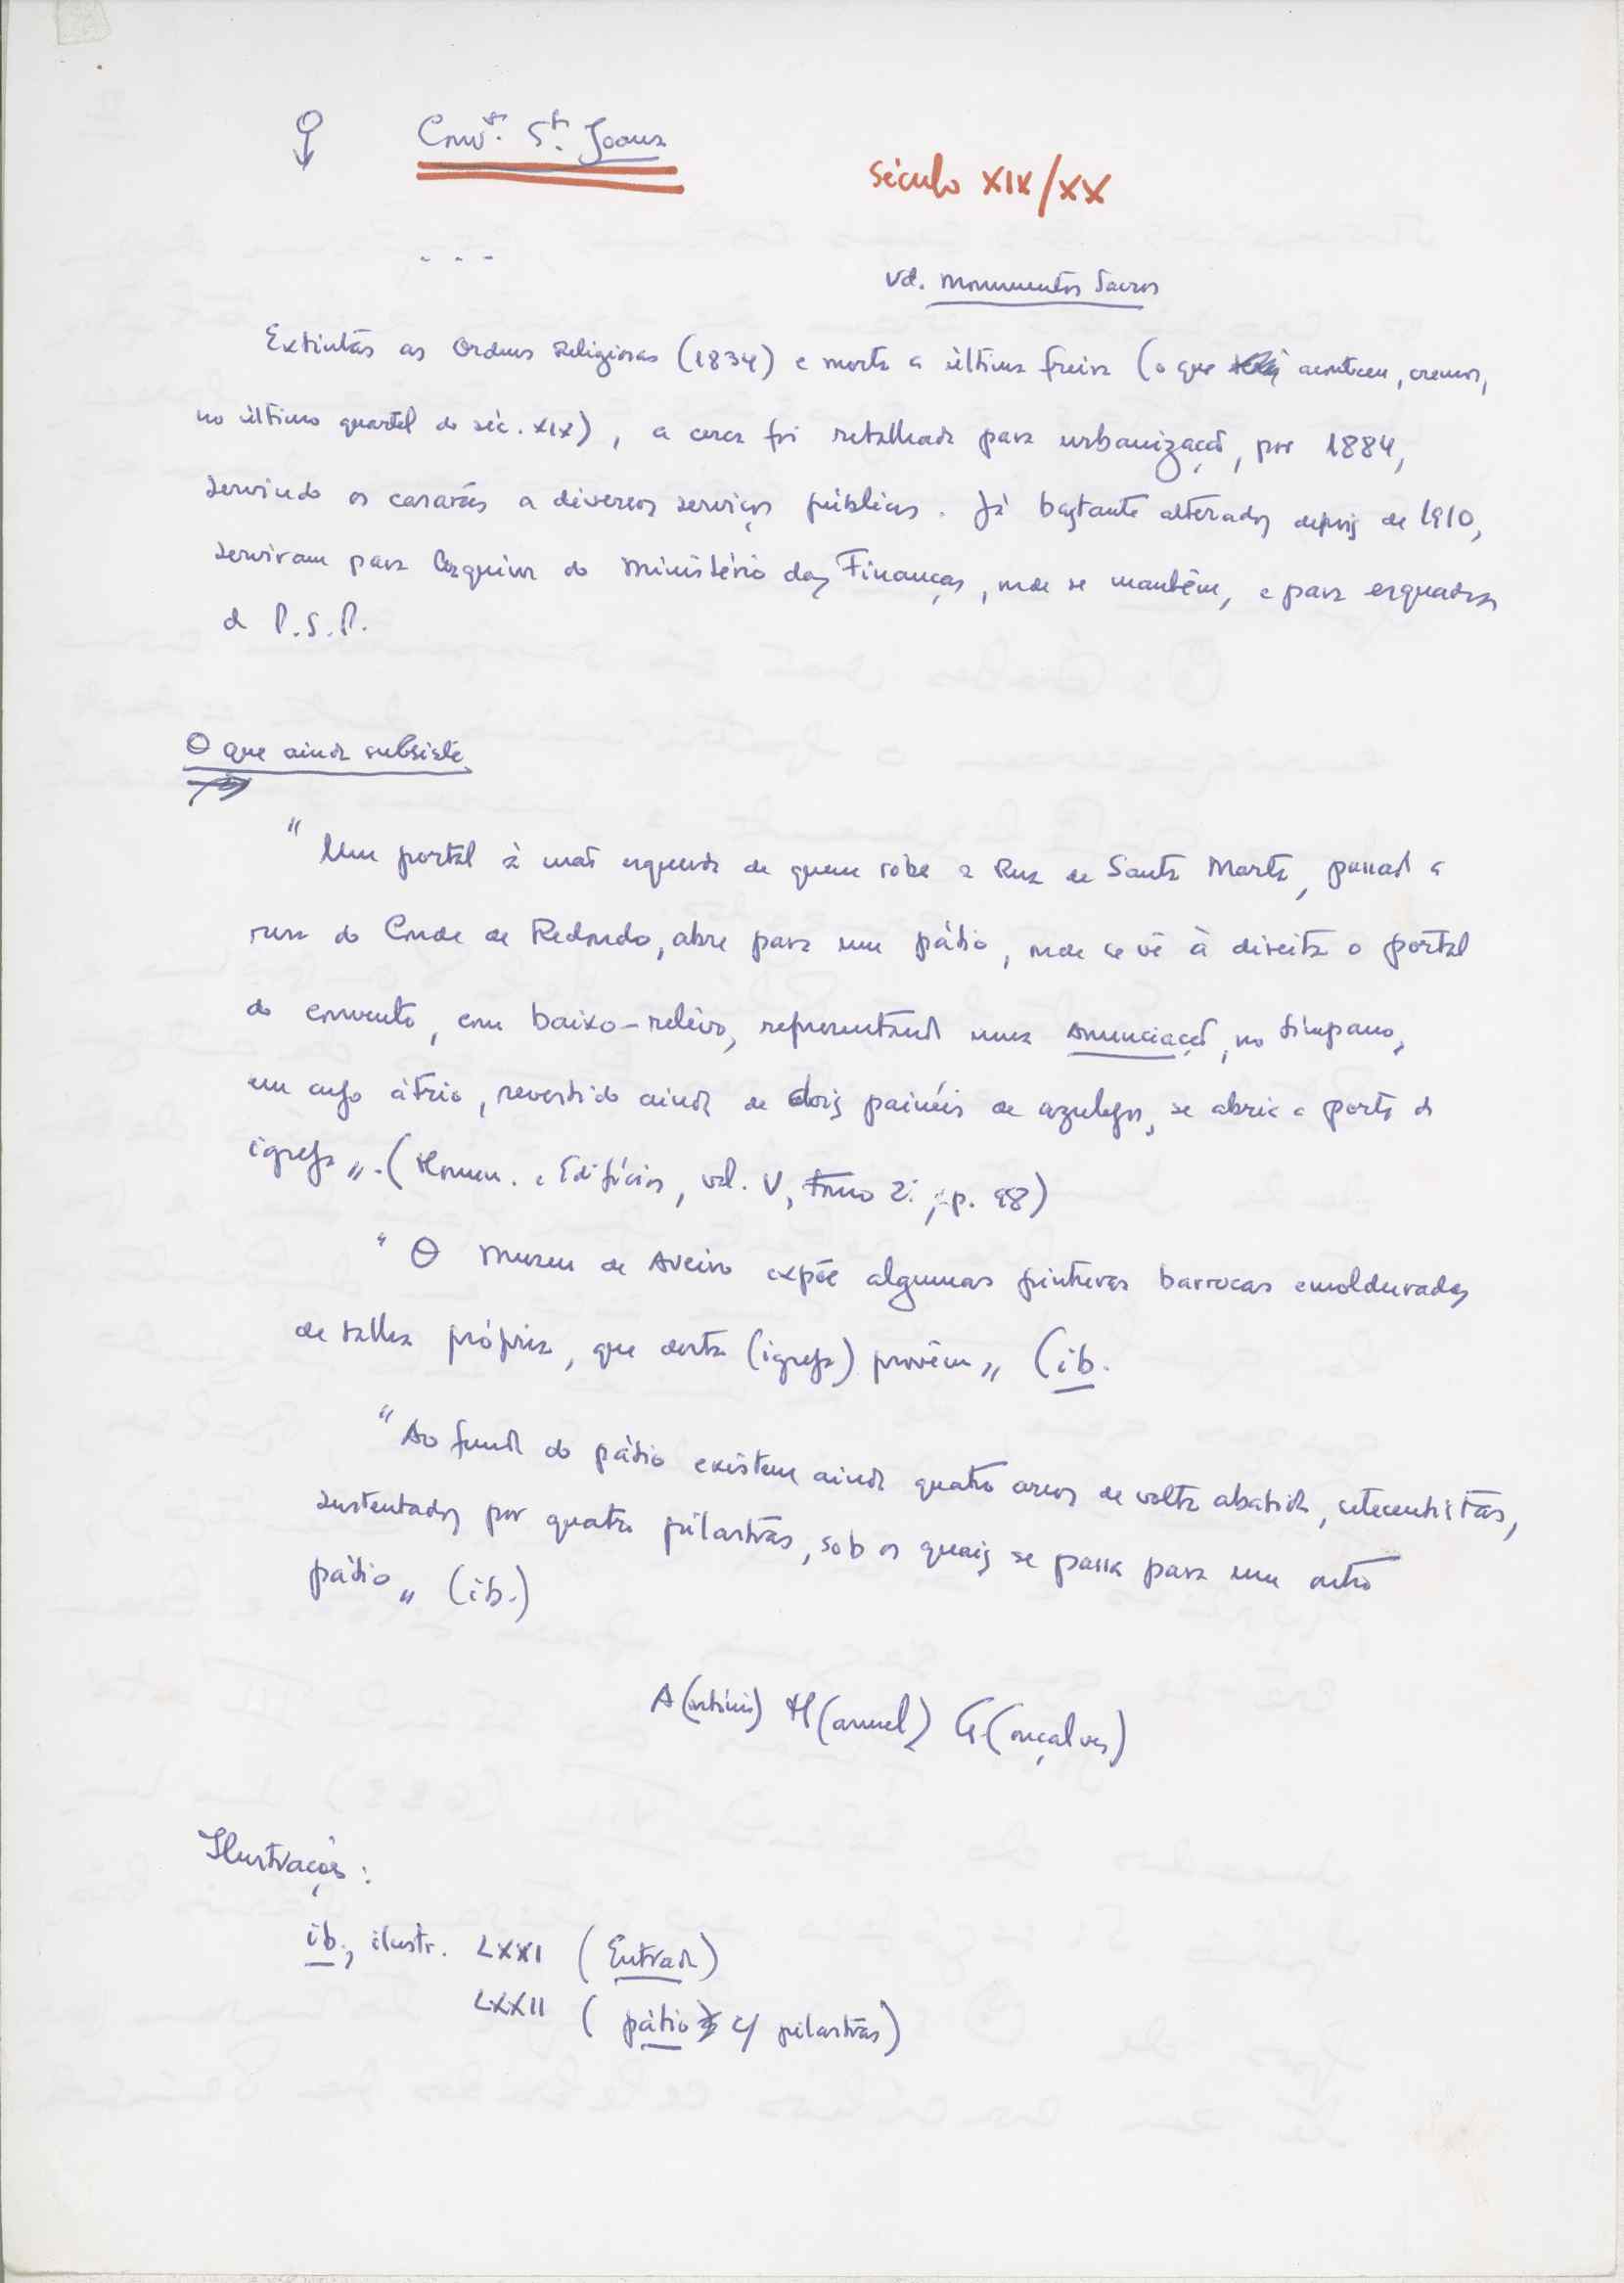 Convto. Sta. Joana
Século XIX/XX
- - -
Vd. Monumentos Sacros
Extintas as Ordens Religiosas (1834) e morta a última freira (o que aconteceu, cremos,
no último quartel do séc. XIX), a cerca foi retalhada para urbanização, por 1884,
servindo os casarões a diversos serviços públicos. Já bastante alterados depois de 1910,
serviram para do Ministério das Finanças, onde se mantêm, e para esquadra
da P.S.P.
O que ainda subsiste
" Um portal à mão esquerda de quem sobe a Rua de Santa Marta, passada a
rua do Conde de Redondo, abre para um pátio, onde se vê à direita o portal
do convento, com baixo-relêvo, representando uma Anunciação, no tímpano,
em cujo átrio, revestido ainda de dois painéis de azulejos, se abria a porta da
igreja". (Monum. e Edifícios, vol. V, Tomo 2º, p. 98)
" O Museu de Aveiro expõe algumas pinturas barrocas emolduradas
de talha própria, que desta (igreja) provêm" (ib.
" Ao fundo do pátio existem ainda quatro arcos de volta abatida, setecentistas,
sustentados por quatro pilastras, sob os quais se passa para um outro
pátio" (ib.)
A(ntónio) M(anuel) G(onçalves)
Ilustrações:
ib., ilustr. LXXI (Entrada)
LXXII (pátio c/ pilastras)